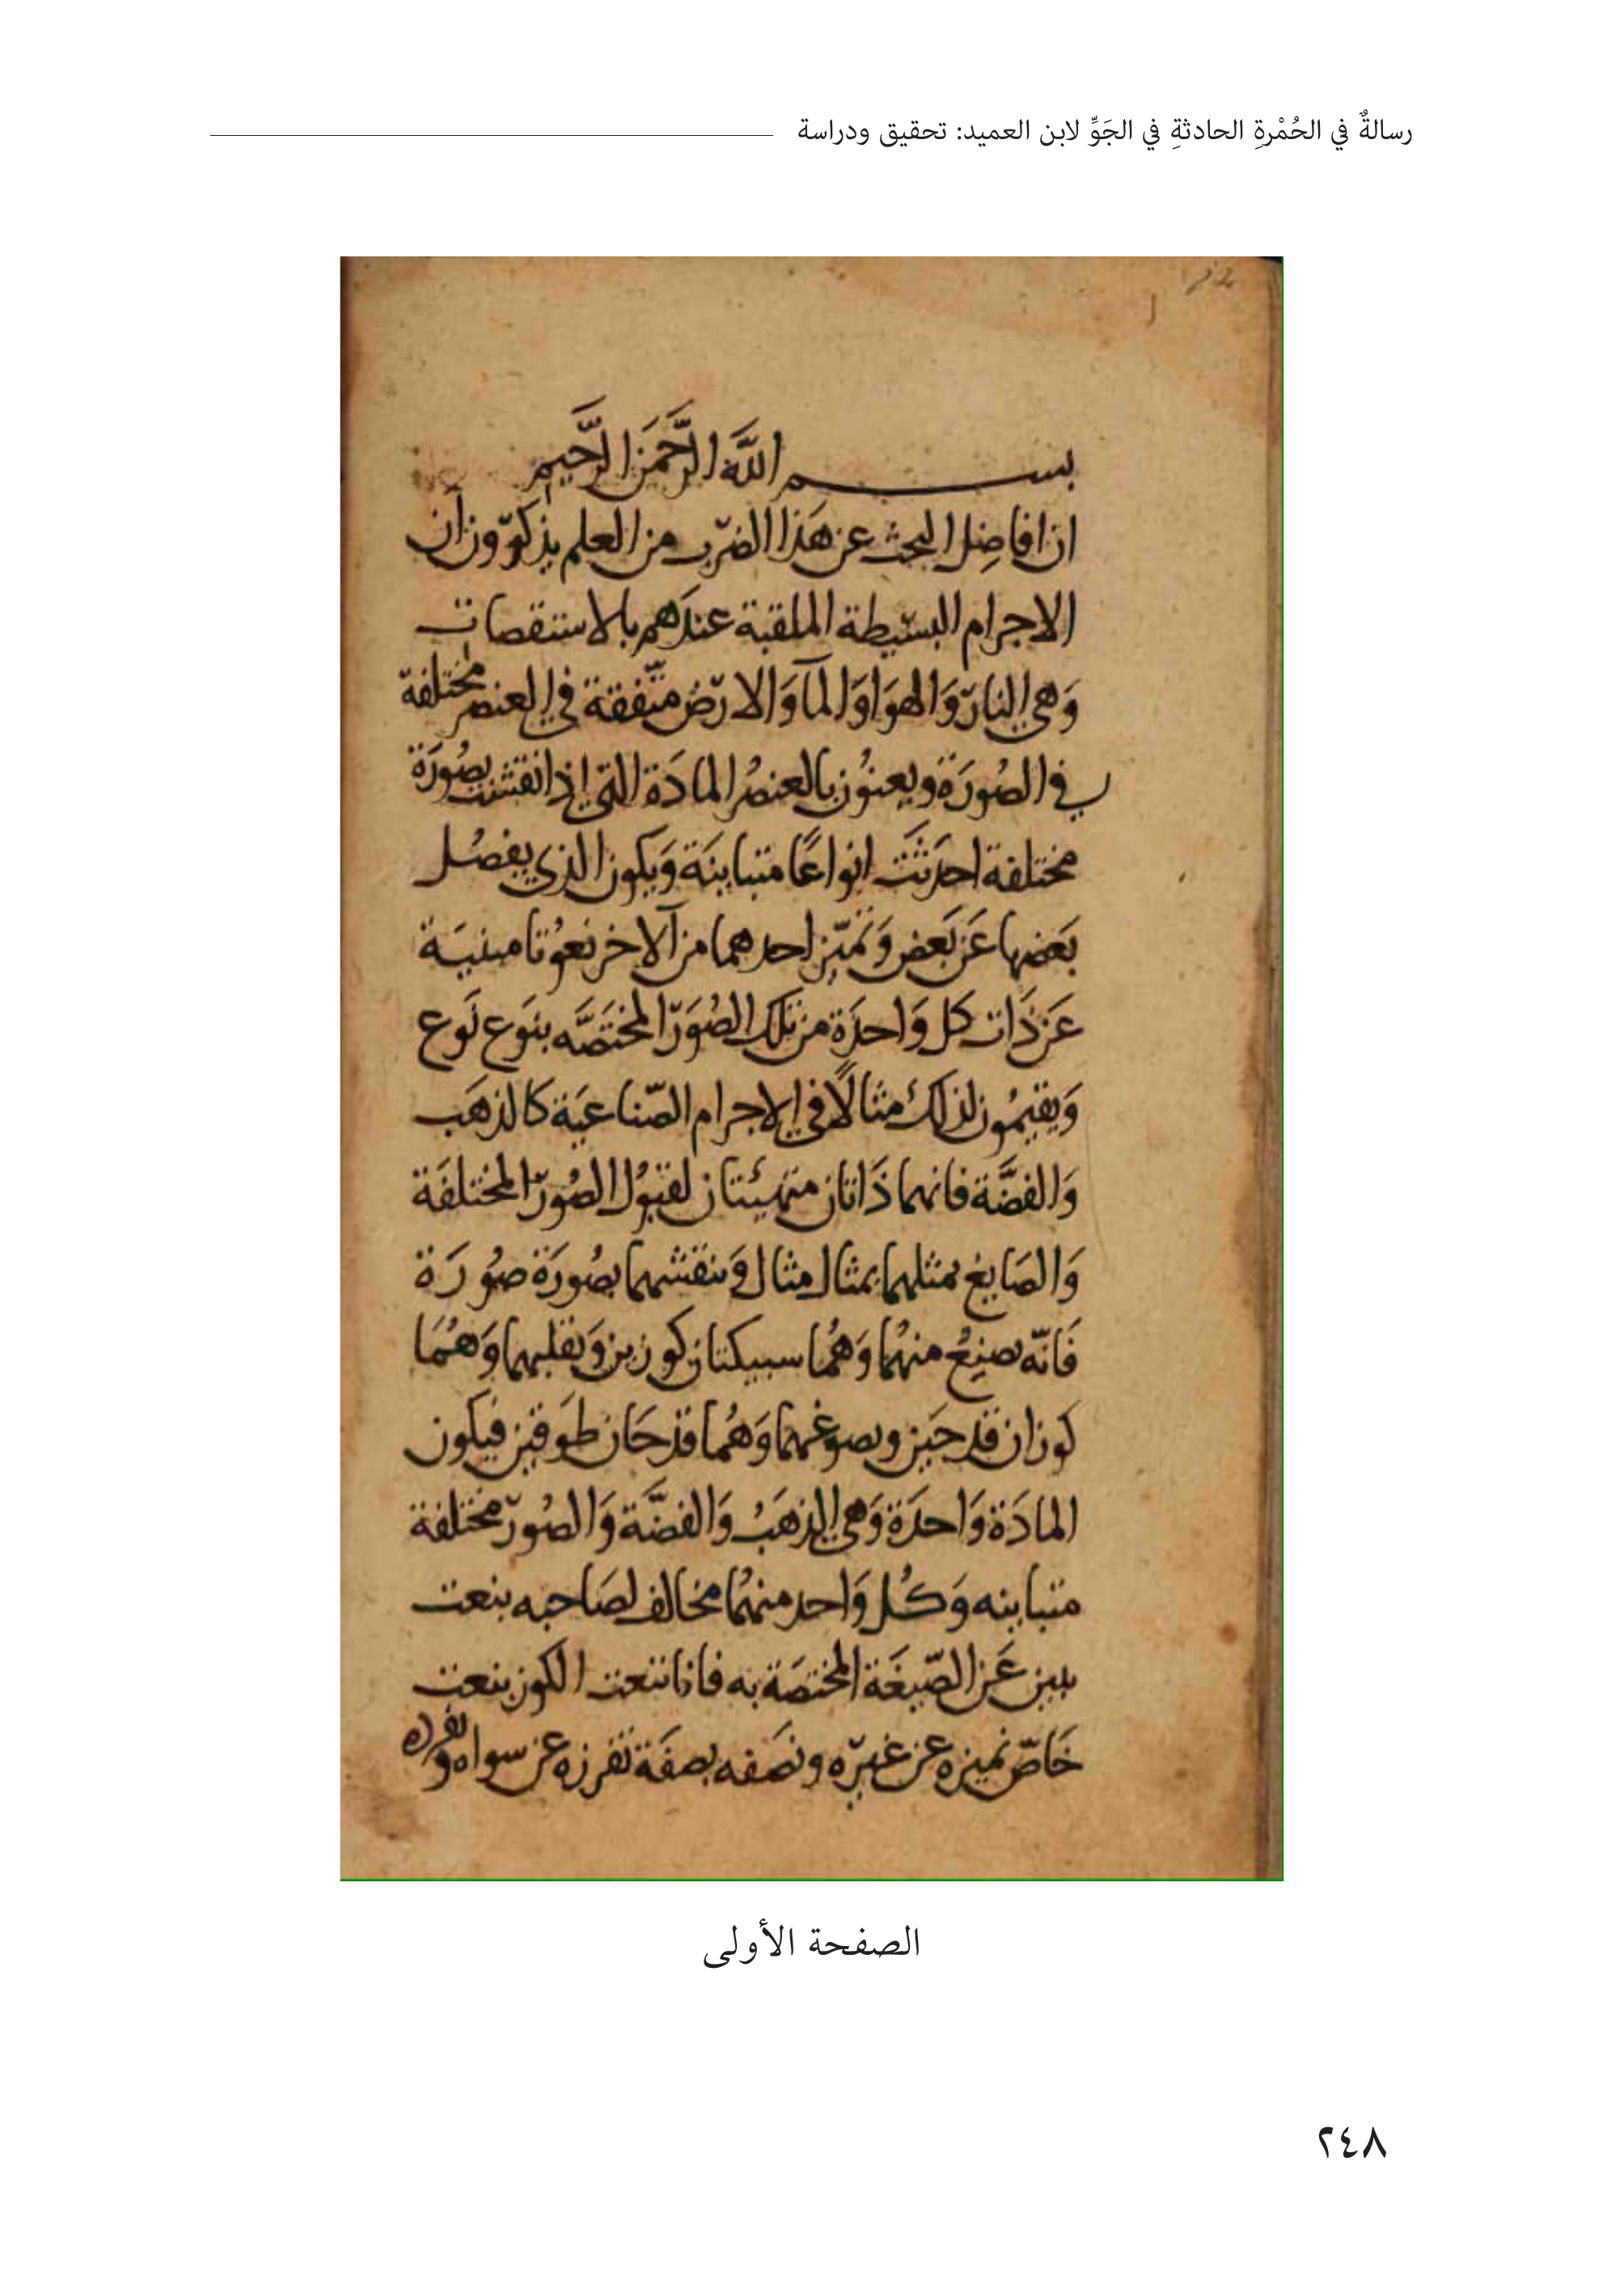 رسالةٌ في الحُمْرةِ الحادثةِ في الجَوِّ لابن العميد: تحقيق ودراسة
بسم الله الرَّحمَن الرَّحيم
ان افاضِل البحث عن هَذا الضرب من العلم يذكرون أن
الاجرام البسيطة الملقبة عندَهم بالاستقصات
وَهي النار وَالهوَا وَالمآ وَالارض متّفقة في العنصر مختلفة
في الصُورَة ويعنُون بالعنصُر المادَة التي إذا نقشت بصُورَة
مختلفة احدَثَت انواعًا متباينَة وَيكون الذي يفصُل
بَعضها عَن بَعض وَتميّز احدهما من الآخر نعوُتا مبنيَة
عَن ذَات كل وَاحدَة من تلك الصُوَر المختَصَّه بنَوع نَوع
وَيقيمُون لذلك مثالًا في الاجرام الصّناعيَة كالذهَب
وَالفضَّة فانهما ذَاتان متهيئتان لقبوُل الصُور المختلفَة
وَالصَايغ يمثلهما بمثال مثال وَينقشهما بصُورَة صُورَة
فَانّه يصنعُ منهُما وَهُما سبيكتان كوزين وَيقلبهما وَهُمَا
كوزان قدحَين ويصوغهما وَهُما قدحَان طَوقين فيكون
المادَة وَاحدَة وَهي الذهَبُ وَالفضَّة وَالصُور مختلفة
متباينه وَكُل وَاحد منهُما مخالف لصَاحبه بنعت
يبين عَن الصّيغَة المختصَة به فانا ننعت الكوز بنعت
خَاصّ نميزه عن غيره ونصَفه بصفَة تفرزه عن سواه
الصفحة الأولى
٢٤٨